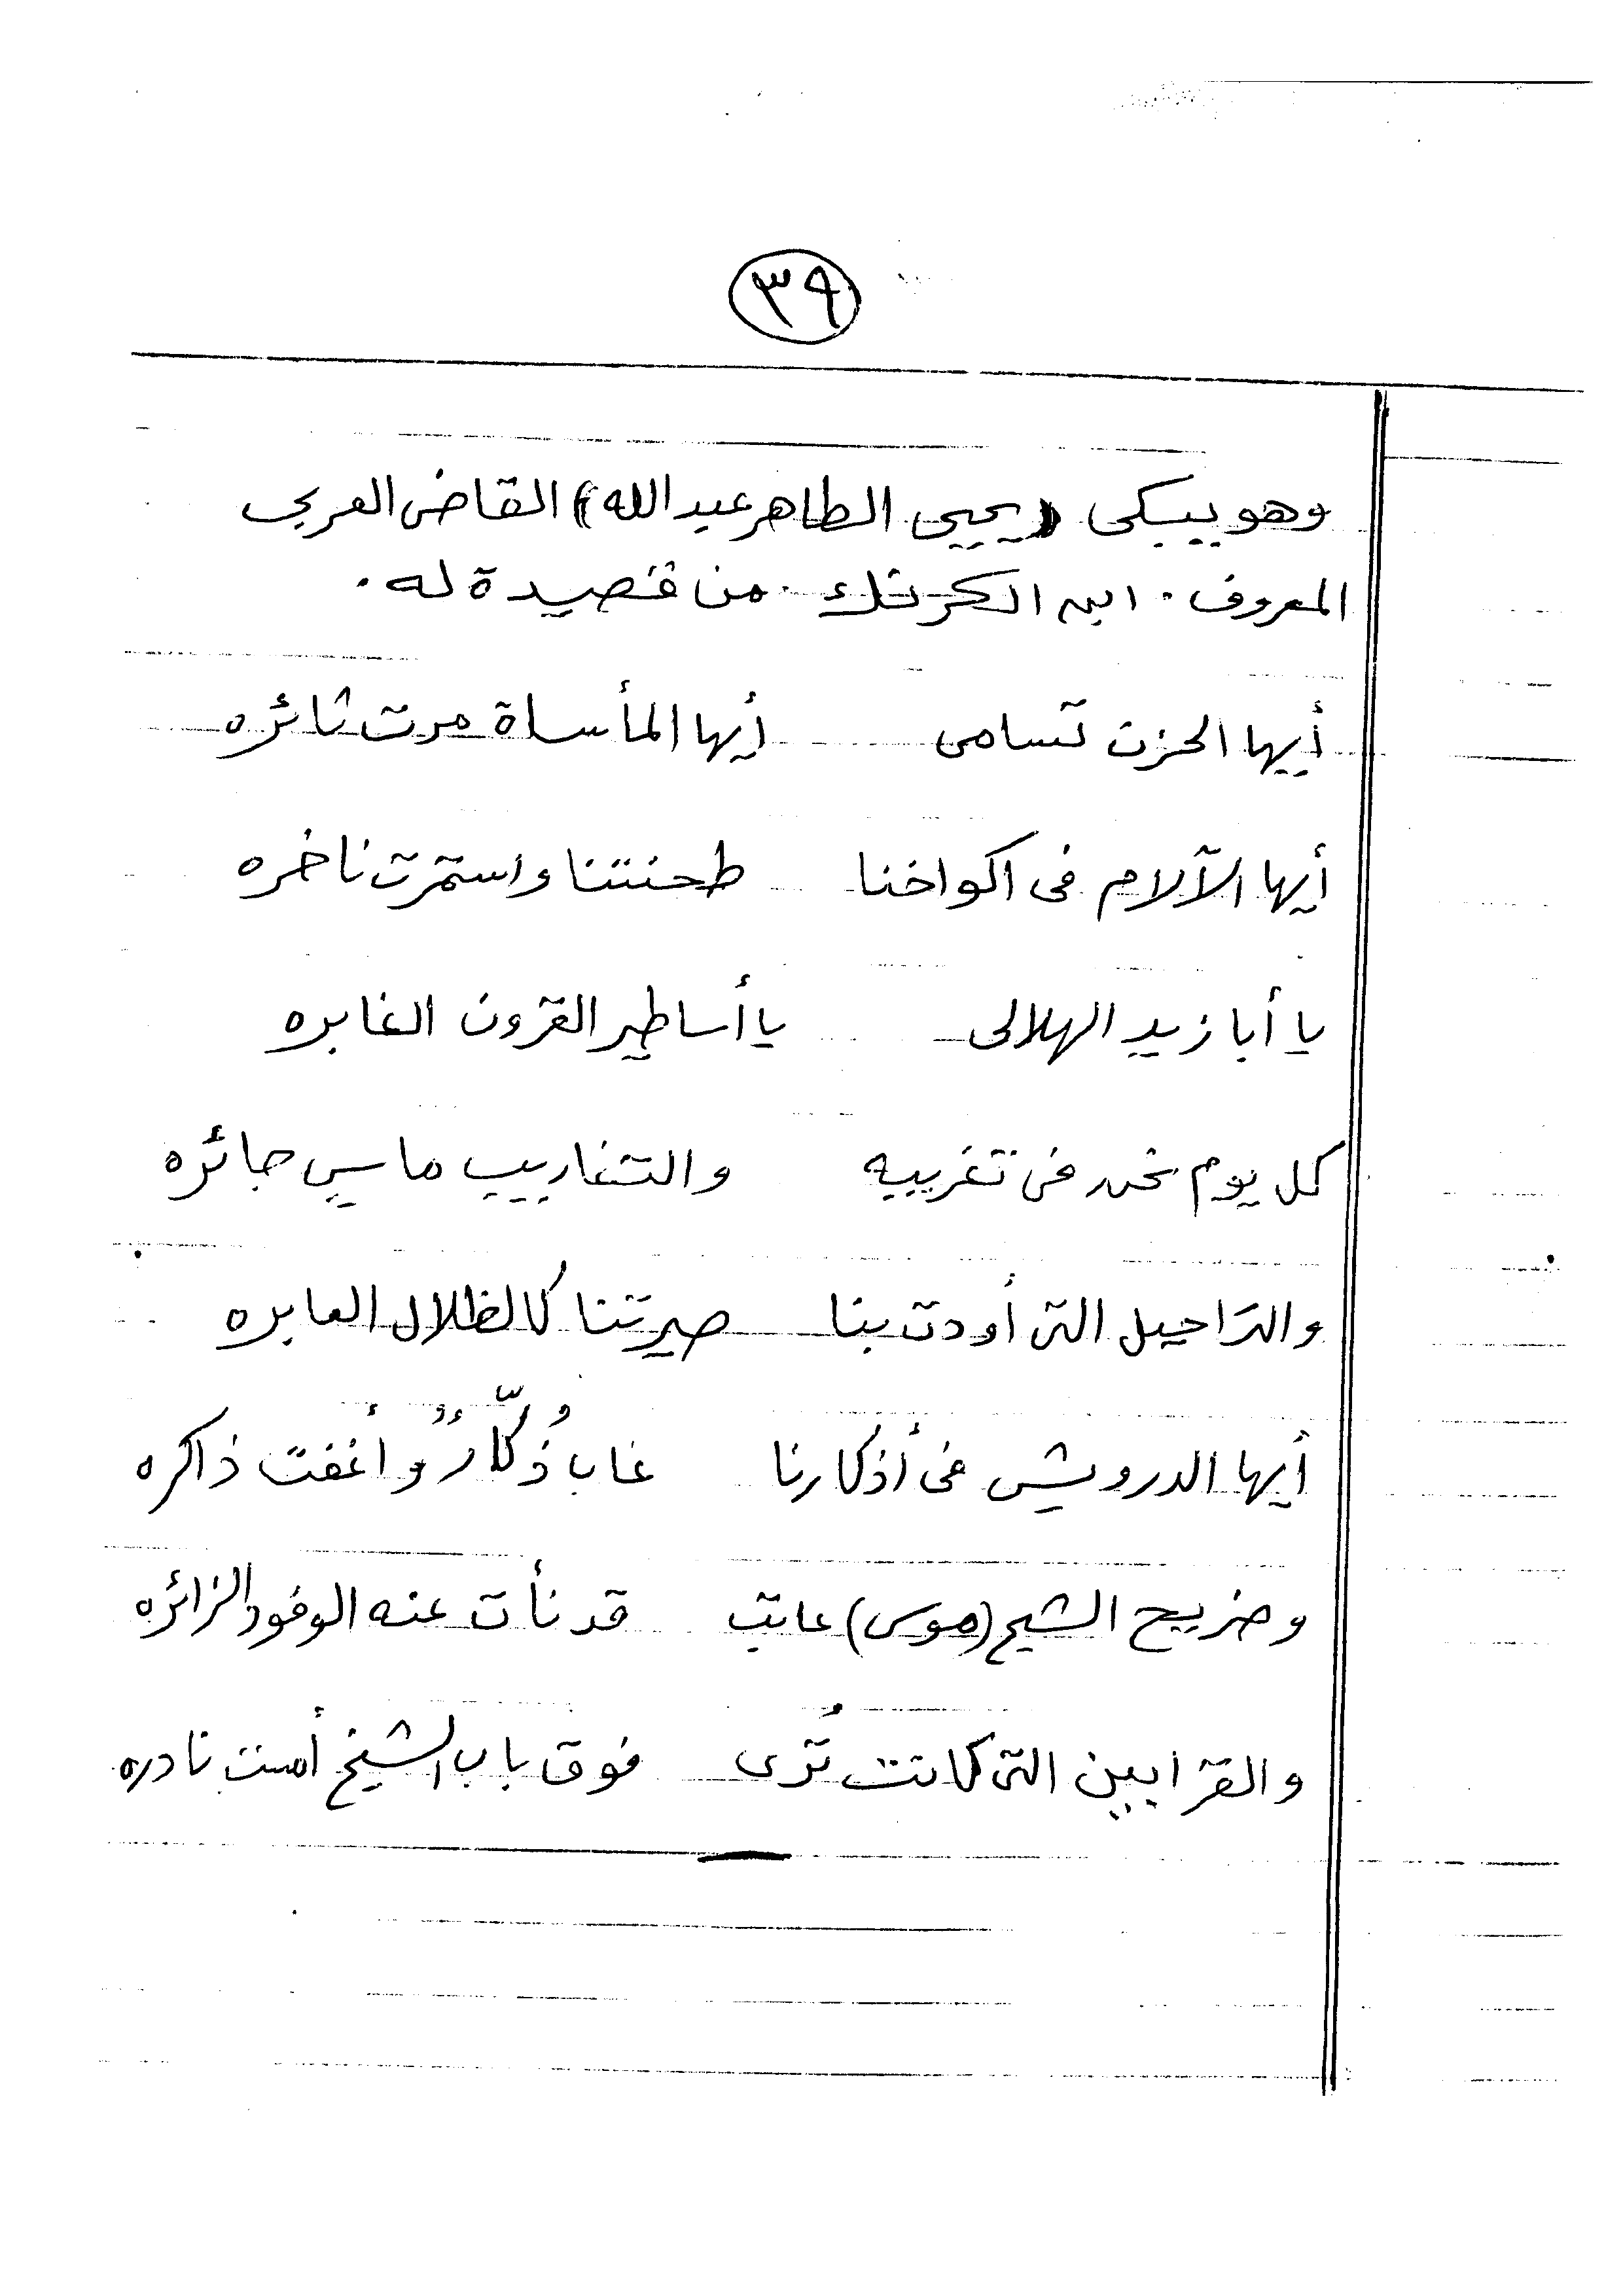 ٣٩
وهو يبكى (يحيى الطاهر عبد الله) القاص العربى
المعروف . ابن الكرنك . من قصيدة له .
أيها الحزن تسامى أيها المأساة مرت ثائره
أيها الآلام فى اكواخنا طحنتنا واستمرت ناخره
يا أبا زيد الهلالى يا أساطير القرون الغابره
كل يوم نحن فى تغريبه والتغاريب مآسى جائره
والتراحيل التى أودت بنا صيرتنا كالظلال العابره
أيها الدرويش فى أذكارنا غاب ذُكّارٌ وأغفت ذاكره
وضريح الشيخ (موسى) عاتب قد نأت عنه الوفود الزائره
والقرابين التى كانت تُرى فوق باب الشيخ أمست نادره